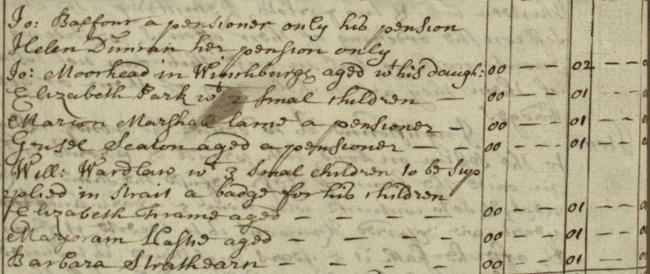 Jo: Balfour a pensioner only his pension
Helen Duncan her pension only
Jo: Moorhead in Winchburgh aged wt his daugh: 00 — — 02 — —
Elizabeth Park wt 2 smal children — 00 — — 01 — —
Marion Marshall lame a pensioner — 00 — — 01 — —
Grisel Seaton aged a pensioner — — 00 — — 01 — —
Will: Wardlaw wt 3 smal children to be sup
plied in strait a badge for his children
Elizabeth Thrame aged — — — — 00 — — 01 — —
Marjoram Hastie aged — — — — 00 — — 01 — —
Barbara Strathearn — — — — 00 — — 01 — —